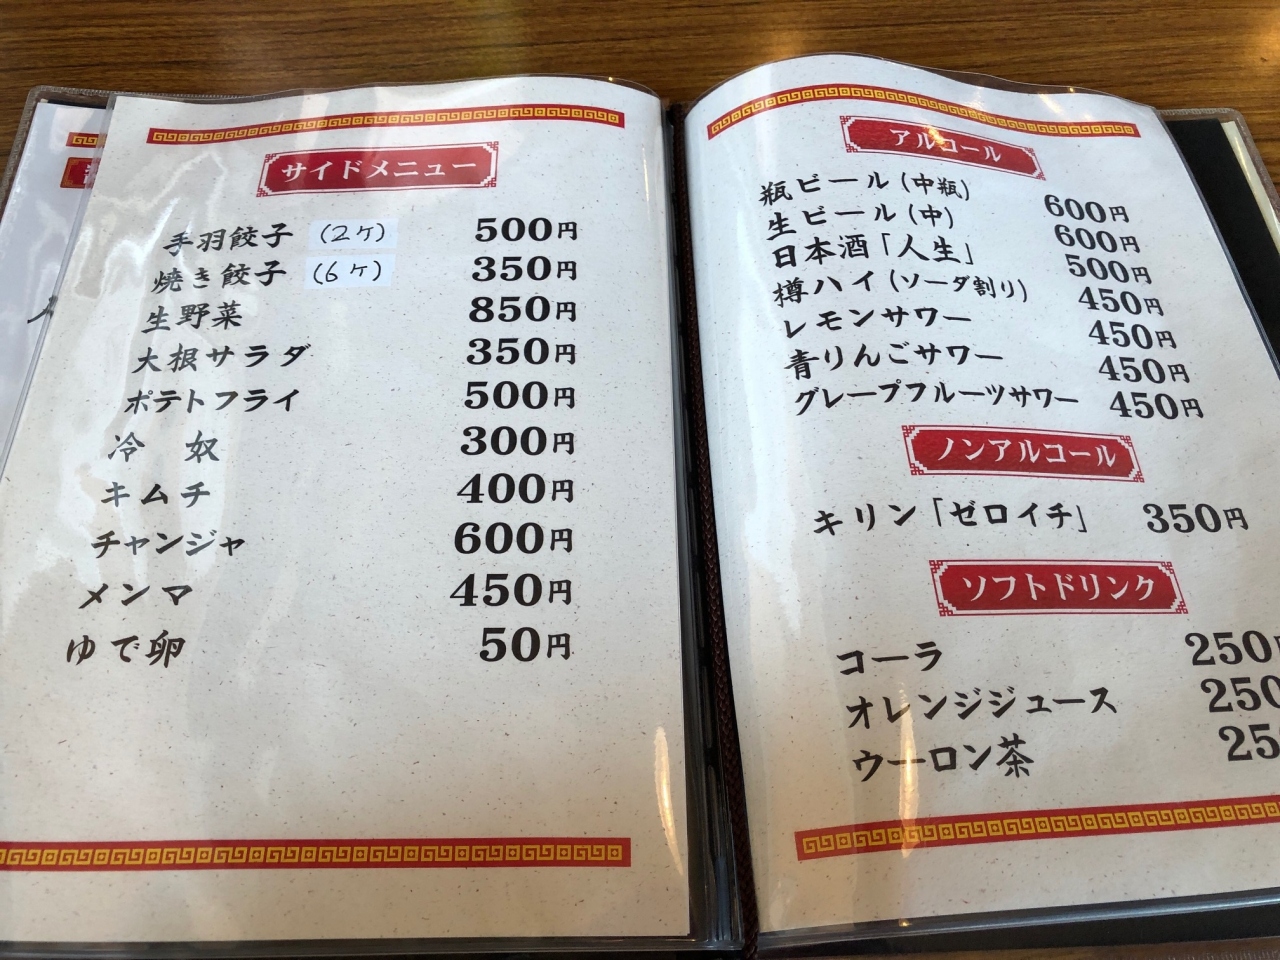 サイドメニュー
手羽餃子 (2ヶ) 500円
焼き餃子 (6ヶ) 350円
生野菜 850円
大根サラダ 350円
ポテトフライ 500円
冷 奴 300円
キムチ 400円
チャンジャ 600円
メンマ 450円
ゆで卵 50円
アルコール
瓶ビール(中瓶) 600円
生ビール(中) 600円
日本酒「人生」 500円
樽ハイ(ソーダ割り) 450円
レモンサワー 450円
青りんごサワー 450円
グレープフルーツサワー 450円
ノンアルコール
キリン「ゼロイチ」 350円
ソフトドリンク
コーラ 250
オレンジジュース 250
ウーロン茶 25